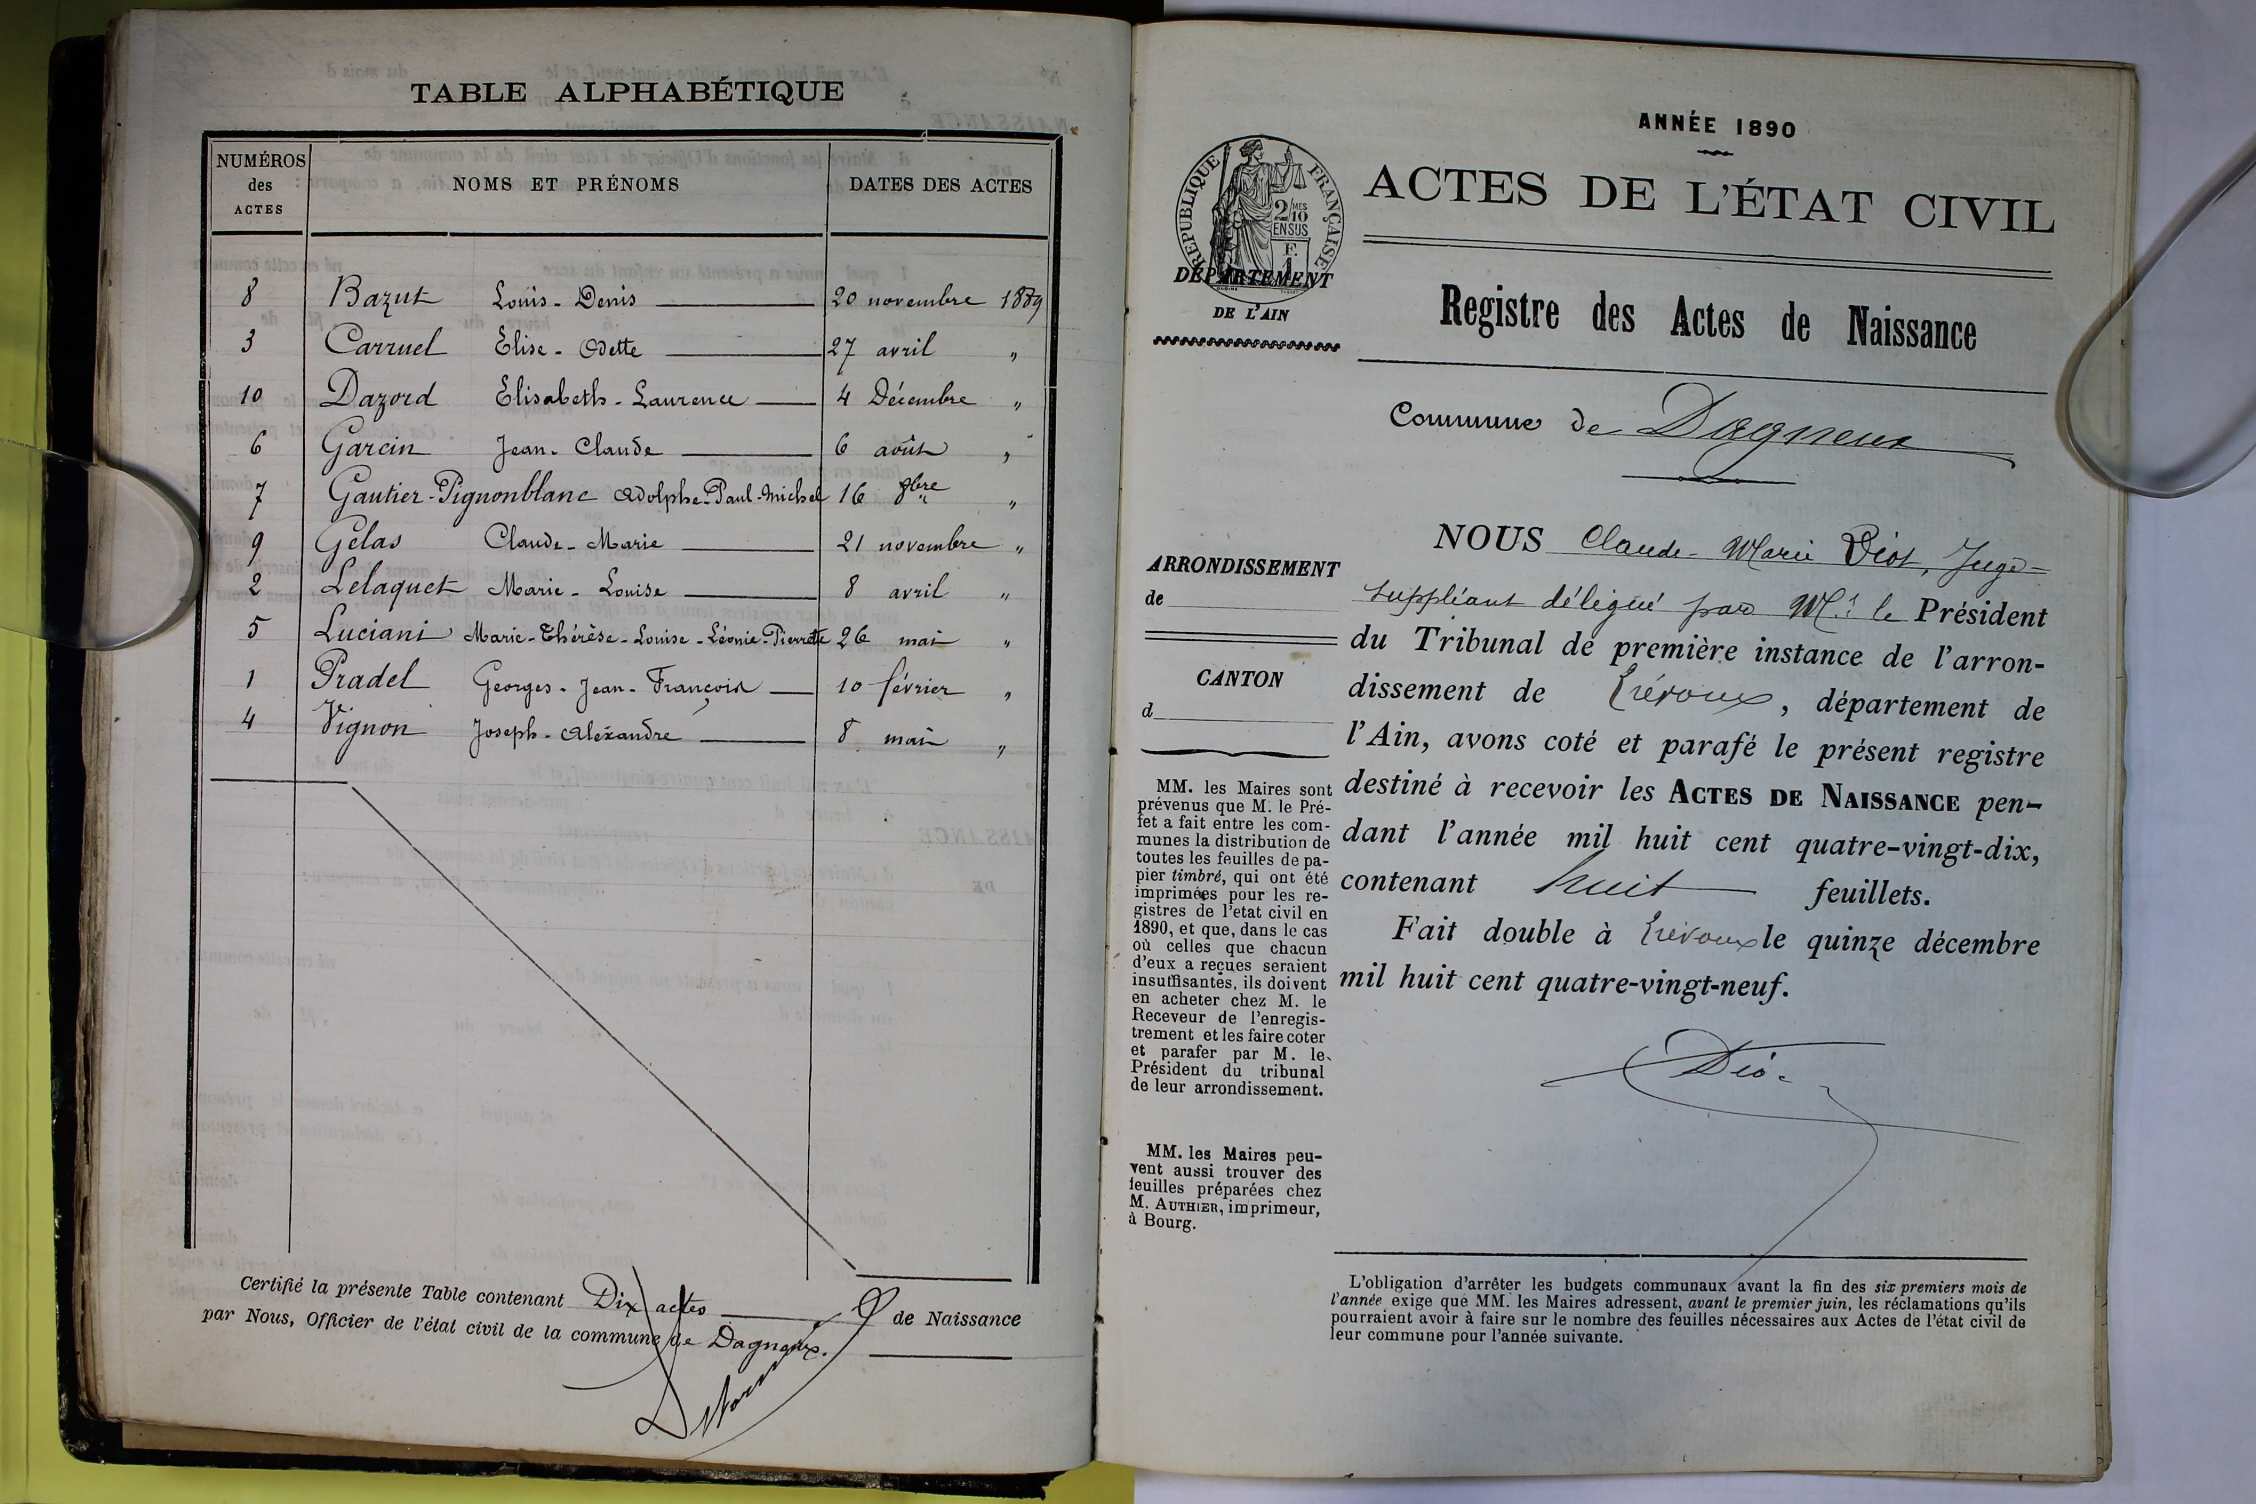 TABLE ALPHABÉTIQUE
NUMÉROS des ACTES NOMS ET PRÉNOMS DATES DES ACTES
8 Bazut Louis-Denis 20 novembre 1889
3 Carruel Elise-Odette 27 avril "
10 Dazord Elisabeth-Laurence 4 Décembre "
6 Garcin Jean-Claude 6 août "
7 Gautier-Pignonblanc Adolphe-Paul-Michel 16 8bre "
9 Gelas Claude-Marie 21 novembre "
2 Lelaquet Marie-Louise 8 avril "
5 Luciani Marie-Thérèse-Louise-Léonie-Pierrette 26 mai "
1 Pradel Georges-Jean-François 10 février "
4 Vignon Joseph-Alexandre 8 mai "
Certifié la présente Table contenant Dix actes de Naissance
par Nous, Officier de l'état civil de la commune de Dagneux.
ANNÉE 1890
RÉPUBLIQUE FRANÇAISE
2/10 MES
EN SUS
F.
1
ACTES DE L'ÉTAT CIVIL
DÉPARTEMENT
DE L'AIN
Registre des Actes de Naissance
Commune de Dagneux
ARRONDISSEMENT
de
CANTON
d
MM. les Maires sont
prévenus que M. le Pré-
fet a fait entre les com-
munes la distribution de
toutes les feuilles de pa-
pier timbré, qui ont été
imprimées pour les re-
gistres de l'etat civil en
1890, et que, dans le cas
où celles que chacun
d'eux a reçues seraient
insuffisantes, ils doivent
en acheter chez M. le
Receveur de l'enregis-
trement et les faire coter
et parafer par M. le
Président du tribunal
de leur arrondissement.
MM. les Maires peu-
vent aussi trouver des
feuilles préparées chez
M. AUTHIER, imprimeur,
à Bourg.
NOUS Claude-Marie Diot, Juge-
suppléant délégué par Mr. le Président
du Tribunal de première instance de l'arron-
dissement de Trévoux, département de
l'Ain, avons coté et parafé le présent registre
destiné à recevoir les ACTES DE NAISSANCE pen-
dant l'année mil huit cent quatre-vingt-dix,
contenant huit feuillets.
Fait double à Trévoux le quinze décembre
mil huit cent quatre-vingt-neuf.
L'obligation d'arrêter les budgets communaux avant la fin des six premiers mois de
l'année exige que MM. les Maires adressent, avant le premier juin, les réclamations qu'ils
pourraient avoir à faire sur le nombre des feuilles nécessaires aux Actes de l'état civil de
leur commune pour l'année suivante.